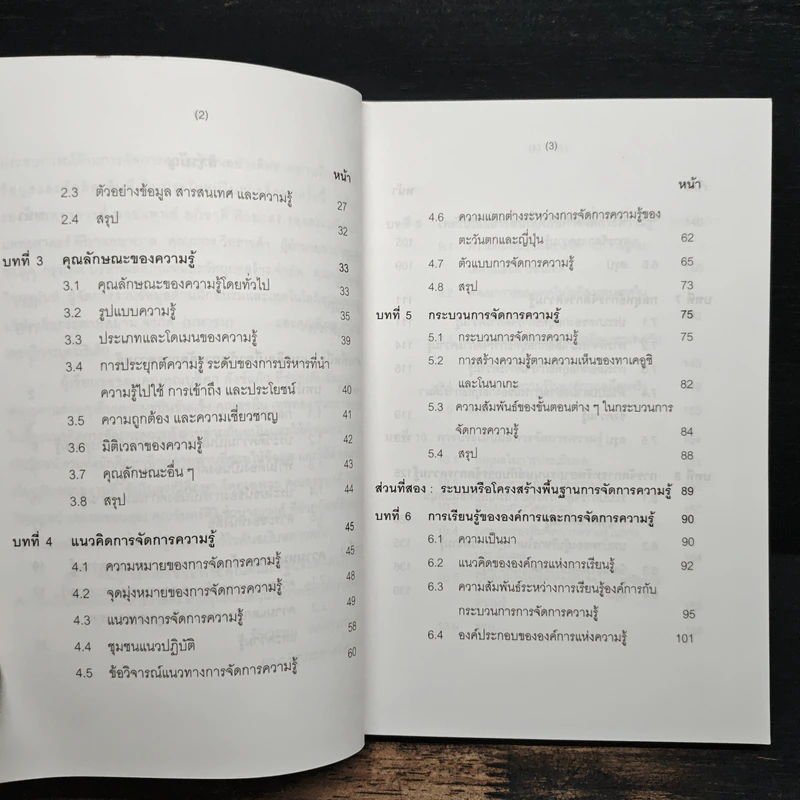 (2)
หน้า
2.3 ตัวอย่างข้อมูล สารสนเทศ และความรู้ 27
2.4 สรุป 32
บทที่ 3 คุณลักษณะของความรู้ 33
3.1 คุณลักษณะของความรู้โดยทั่วไป 33
3.2 รูปแบบความรู้ 35
3.3 ประเภทและโดเมนของความรู้ 39
3.4 การประยุกต์ความรู้ ระดับของการบริหารที่นำ
ความรู้ไปใช้ การเข้าถึง และประโยชน์ 40
3.5 ความถูกต้อง และความเชี่ยวชาญ 41
3.6 มิติเวลาของความรู้ 42
3.7 คุณลักษณะอื่น ๆ 43
3.8 สรุป 44
บทที่ 4 แนวคิดการจัดการความรู้ 45
4.1 ความหมายของการจัดการความรู้ 45
4.2 จุดมุ่งหมายของการจัดการความรู้ 48
4.3 แนวทางการจัดการความรู้ 49
4.4 ชุมชนแนวปฏิบัติ 58
4.5 ข้อวิจารณ์แนวทางการจัดการความรู้ 60
(3)
หน้า
4.6 ความแตกต่างระหว่างการจัดการความรู้ของ
ตะวันตกและญี่ปุ่น 62
4.7 ตัวแบบการจัดการความรู้ 65
4.8 สรุป 73
บทที่ 5 กระบวนการจัดการความรู้ 75
5.1 กระบวนการจัดการความรู้ 75
5.2 การสร้างความรู้ตามความเห็นของทาเคอูชิ
และโนนาเกะ 82
5.3 ความสัมพันธ์ของขั้นตอนต่าง ๆ ในกระบวนการ
จัดการความรู้ 84
5.4 สรุป 88
ส่วนที่สอง : ระบบหรือโครงสร้างพื้นฐานการจัดการความรู้ 89
บทที่ 6 การเรียนรู้ขององค์การและการจัดการความรู้ 90
6.1 ความเป็นมา 90
6.2 แนวคิดขององค์การแห่งการเรียนรู้ 92
6.3 ความสัมพันธ์ระหว่างการเรียนรู้องค์การกับ
กระบวนการการจัดการความรู้ 95
6.4 องค์ประกอบขององค์การแห่งความรู้ 101